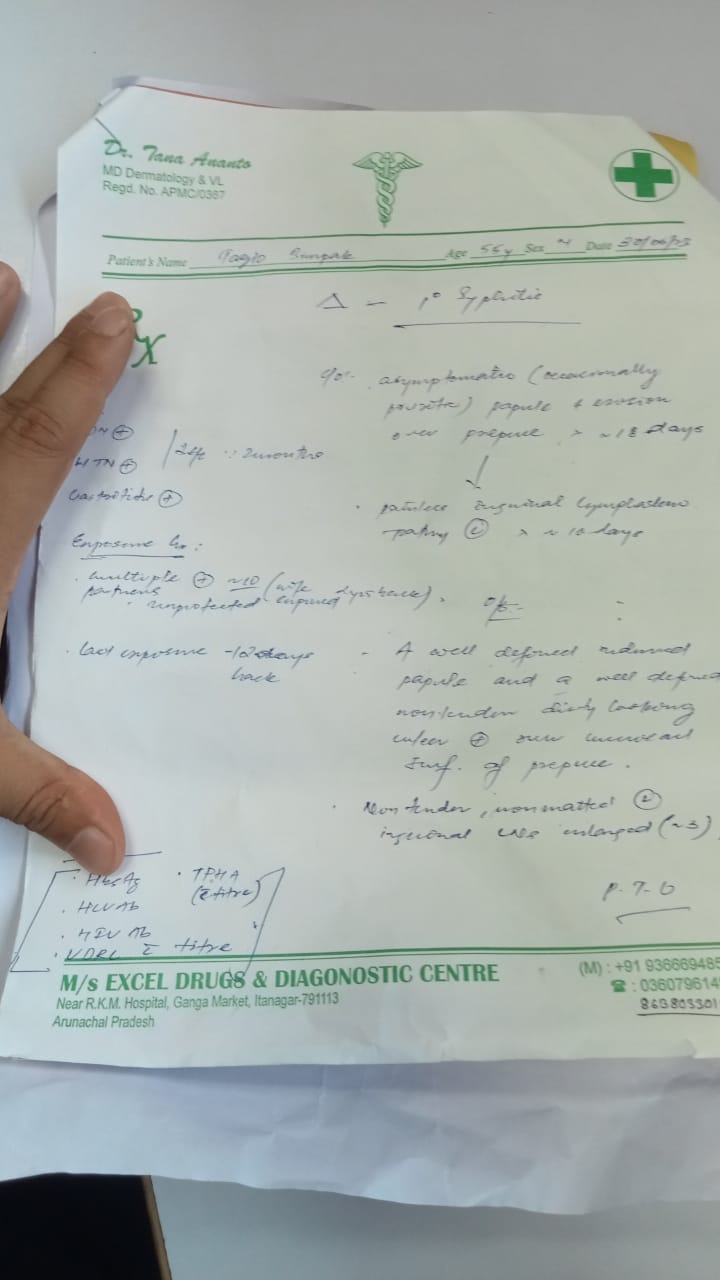 Dr. Tana Ananto
MD Dermatology & VL
Regd. No. APMC/0387
Patient's Name Age 55y Sex M Date 30/06/23
Δ - 1° Syphilis
Rx
c/o:- asymptomatic (occasionally
pruritic) papule + erosion
over prepuce × ~18 days
HTN ⊕
2 months
Gastritis ⊕
painless inguinal lympadeno
pathy × ~ 10 days
Exposure Hx:
multiple ⊕ ~10 (wife expired 2yrs back).
partners
unprotected
O/E:- :
last exposure
back
- A well defined
papule and a well defined
nontender dirty looking
ulcer ⊕ over
surf. of prepuce.
Non tender, nonmatted
inguinal LNs enlarged (~3)
HbsAg
TPHA
(c̄ titre)
HCV Ab
HIV Ab
VDRL c̄ titre
P.T.O
M/s EXCEL DRUGS & DIAGONOSTIC CENTRE
Near R.K.M. Hospital, Ganga Market, Itanagar-791113
Arunachal Pradesh
(M) : +91 936669485
☎ : 0360796145